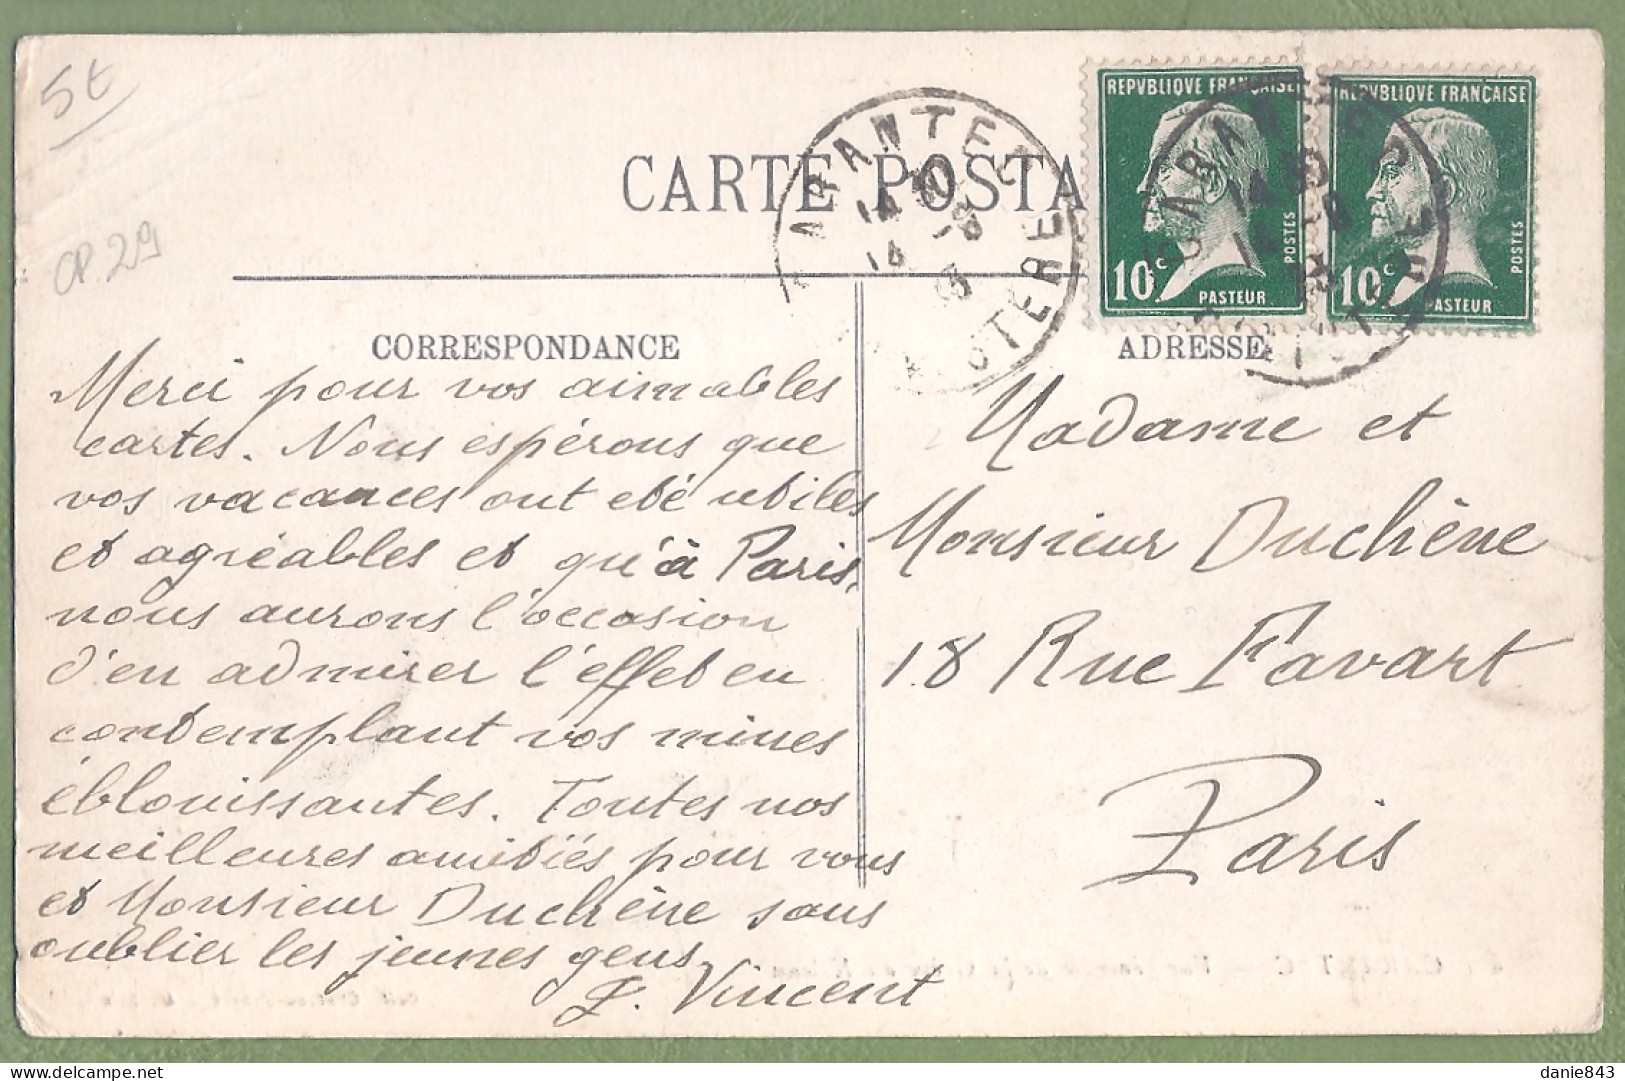 5t
CP.29
CARTE POSTA
REPVBLIQVE FRANÇAISE
10c
POSTES
PASTEUR
REPVBLIQVE FRANÇAISE
10c
POSTES
PASTEUR
CARANTEC
FINISTERE
CORRESPONDANCE
Merci pour vos aimables
cartes. Nous espérons que
vos vacances ont été utiles
et agréables et qu'à Paris,
nous aurons l'occasion
d'en admirer l'effet en
contemplant vos mines
éblouissantes. Toutes nos
meilleures amitiés pour vous
et Monsieur Duchêne sans
oublier les jeunes gens
F. Vincent
ADRESSE
Madame et
Monsieur Duchêne
18 Rue Favart
Paris
danie843